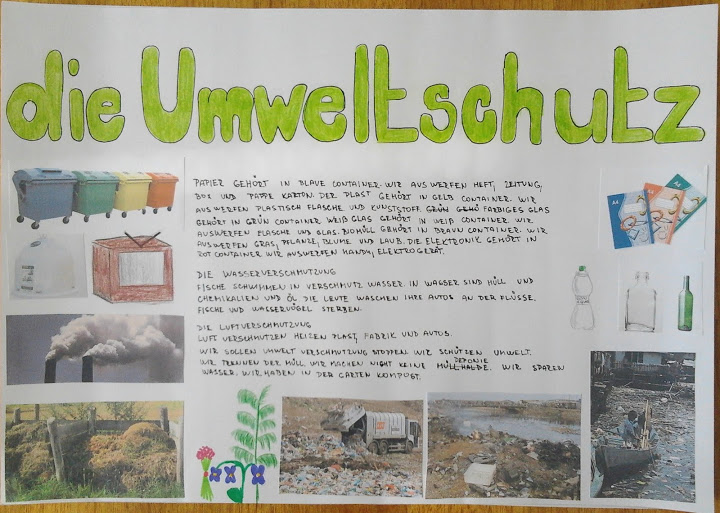 die Umweltschutz
PAPIER GEHÖRT IN BLAUE CONTAINER. WIR AUSWERFEN HEFT, ZEITUNG,
BOE UND PAPPE KARTON. DER PLAST GEHÖRT IN GELB CONTAINER. WIR
AUSWERFEN PLASTISCH FLASCHE UND KUNSTSTOFF. GRÜN GEHÖ FARBIGES GLAS
GEHÖRT IN GRÜN CONTAINER WEIß GLAS GEHÖRT IN WEIß CONTAINER. WIR
AUSWERFEN FLASCHE UND GLAS. BIOMÜLL GEHÖRT IN BRAUN CONTAINER. WIR
AUSWERFEN GRAS, PFLANZE, BLUME UND LAUB. DIE ELEKTRONIK GEHÖRT IN
ROT CONTAINER WIR AUSWERFEN HANDY, ELEKTROGERÄT.
DIE WASSERVERSCHMUTZUNG
FISCHE SCHWIMMEN IN VERSCHMUTZ WASSER. IN WASSER SIND MÜLL UND
CHEMIKALIEN UND ÖL DIE LEUTE WASCHEN IHRE AUTOS AN DER FLÜSSE.
FISCHE UND WASSERVÖGEL STERBEN.
DIE LUFTVERSCHMUTZUNG
LUFT VERSCHMUTZEN HEIZEN PLAST, FABRIK UND AUTOS.
WIR SOLLEN UMWELT VERSCHMUTZUNG STOPPEN. WIR SCHÜTZEN UMWELT.
WIR TRENNEN DER MÜLL. WIR MACHEN NIGHT KEINE MÜLLHALDE DEPONIE. WIR SPAREN
WASSER. WIR HABEN IN DER GARTEN KOMPOST.
A4
A4
A4